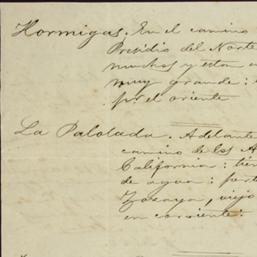 Hormigas. En el camino
Presidio del Norte
muchos y esta en
muy grande:
por el oriente
La Palotada. Adelante
camino de los A
California: tien
de agua: perte
Zosaya, viejo
en corriente: